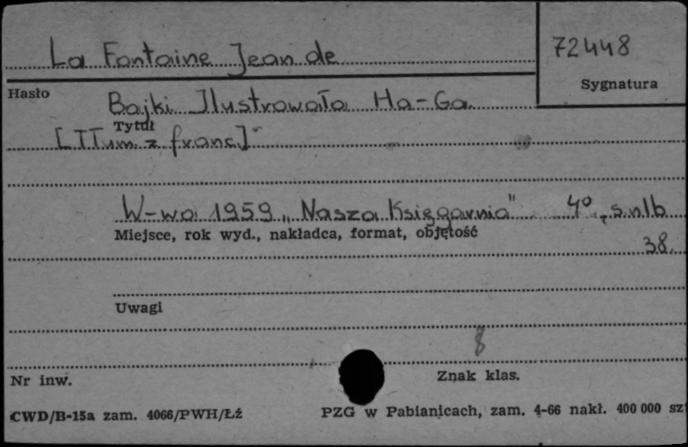 La Fontaine Jean de
72448
Sygnatura
Hasło
Bajki Ilustrowała Ha-Ga
Tytuł
[Tłum. z franc.]
W-wa 1959 „Nasza Księgarnia" 4°, s.nlb
Miejsce, rok wyd., nakładca, format, objętość
38.
Uwagi
8
Nr inw.
Znak klas.
CWD/B-15a zam. 4066/PWH/Łź
PZG w Pabianicach, zam. 4-66 nakł. 400 000 sz